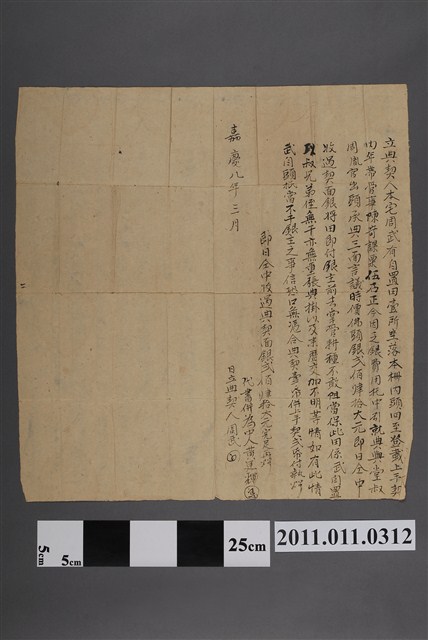 立典契人本宅周武有自置田壹所坐落本柵內頭向至登載上手契
內年帶管事陳荷課粟伍石正今因乏銀費用托中引就典與堂叔
周胤官出頭承典三面言議時價佛頭銀弍佰肆拾大元即日仝中
收過契面銀將田即付銀主前去掌管耕種不敢阻當保此田係武自置
與叔兄弟侄無干亦無重張典掛以及來歷交加不明等情如有此情
武自頭抵當不干銀主之事信恐口無憑今典契壹帋併上手契弍帋付執炤
即日仝中收過典契面銀弍佰肆拾大元完足再炤
代書併為中人黃連輝
日立典契人周武
嘉慶八年三月
5cm
5cm
25cm
2011.011.0312